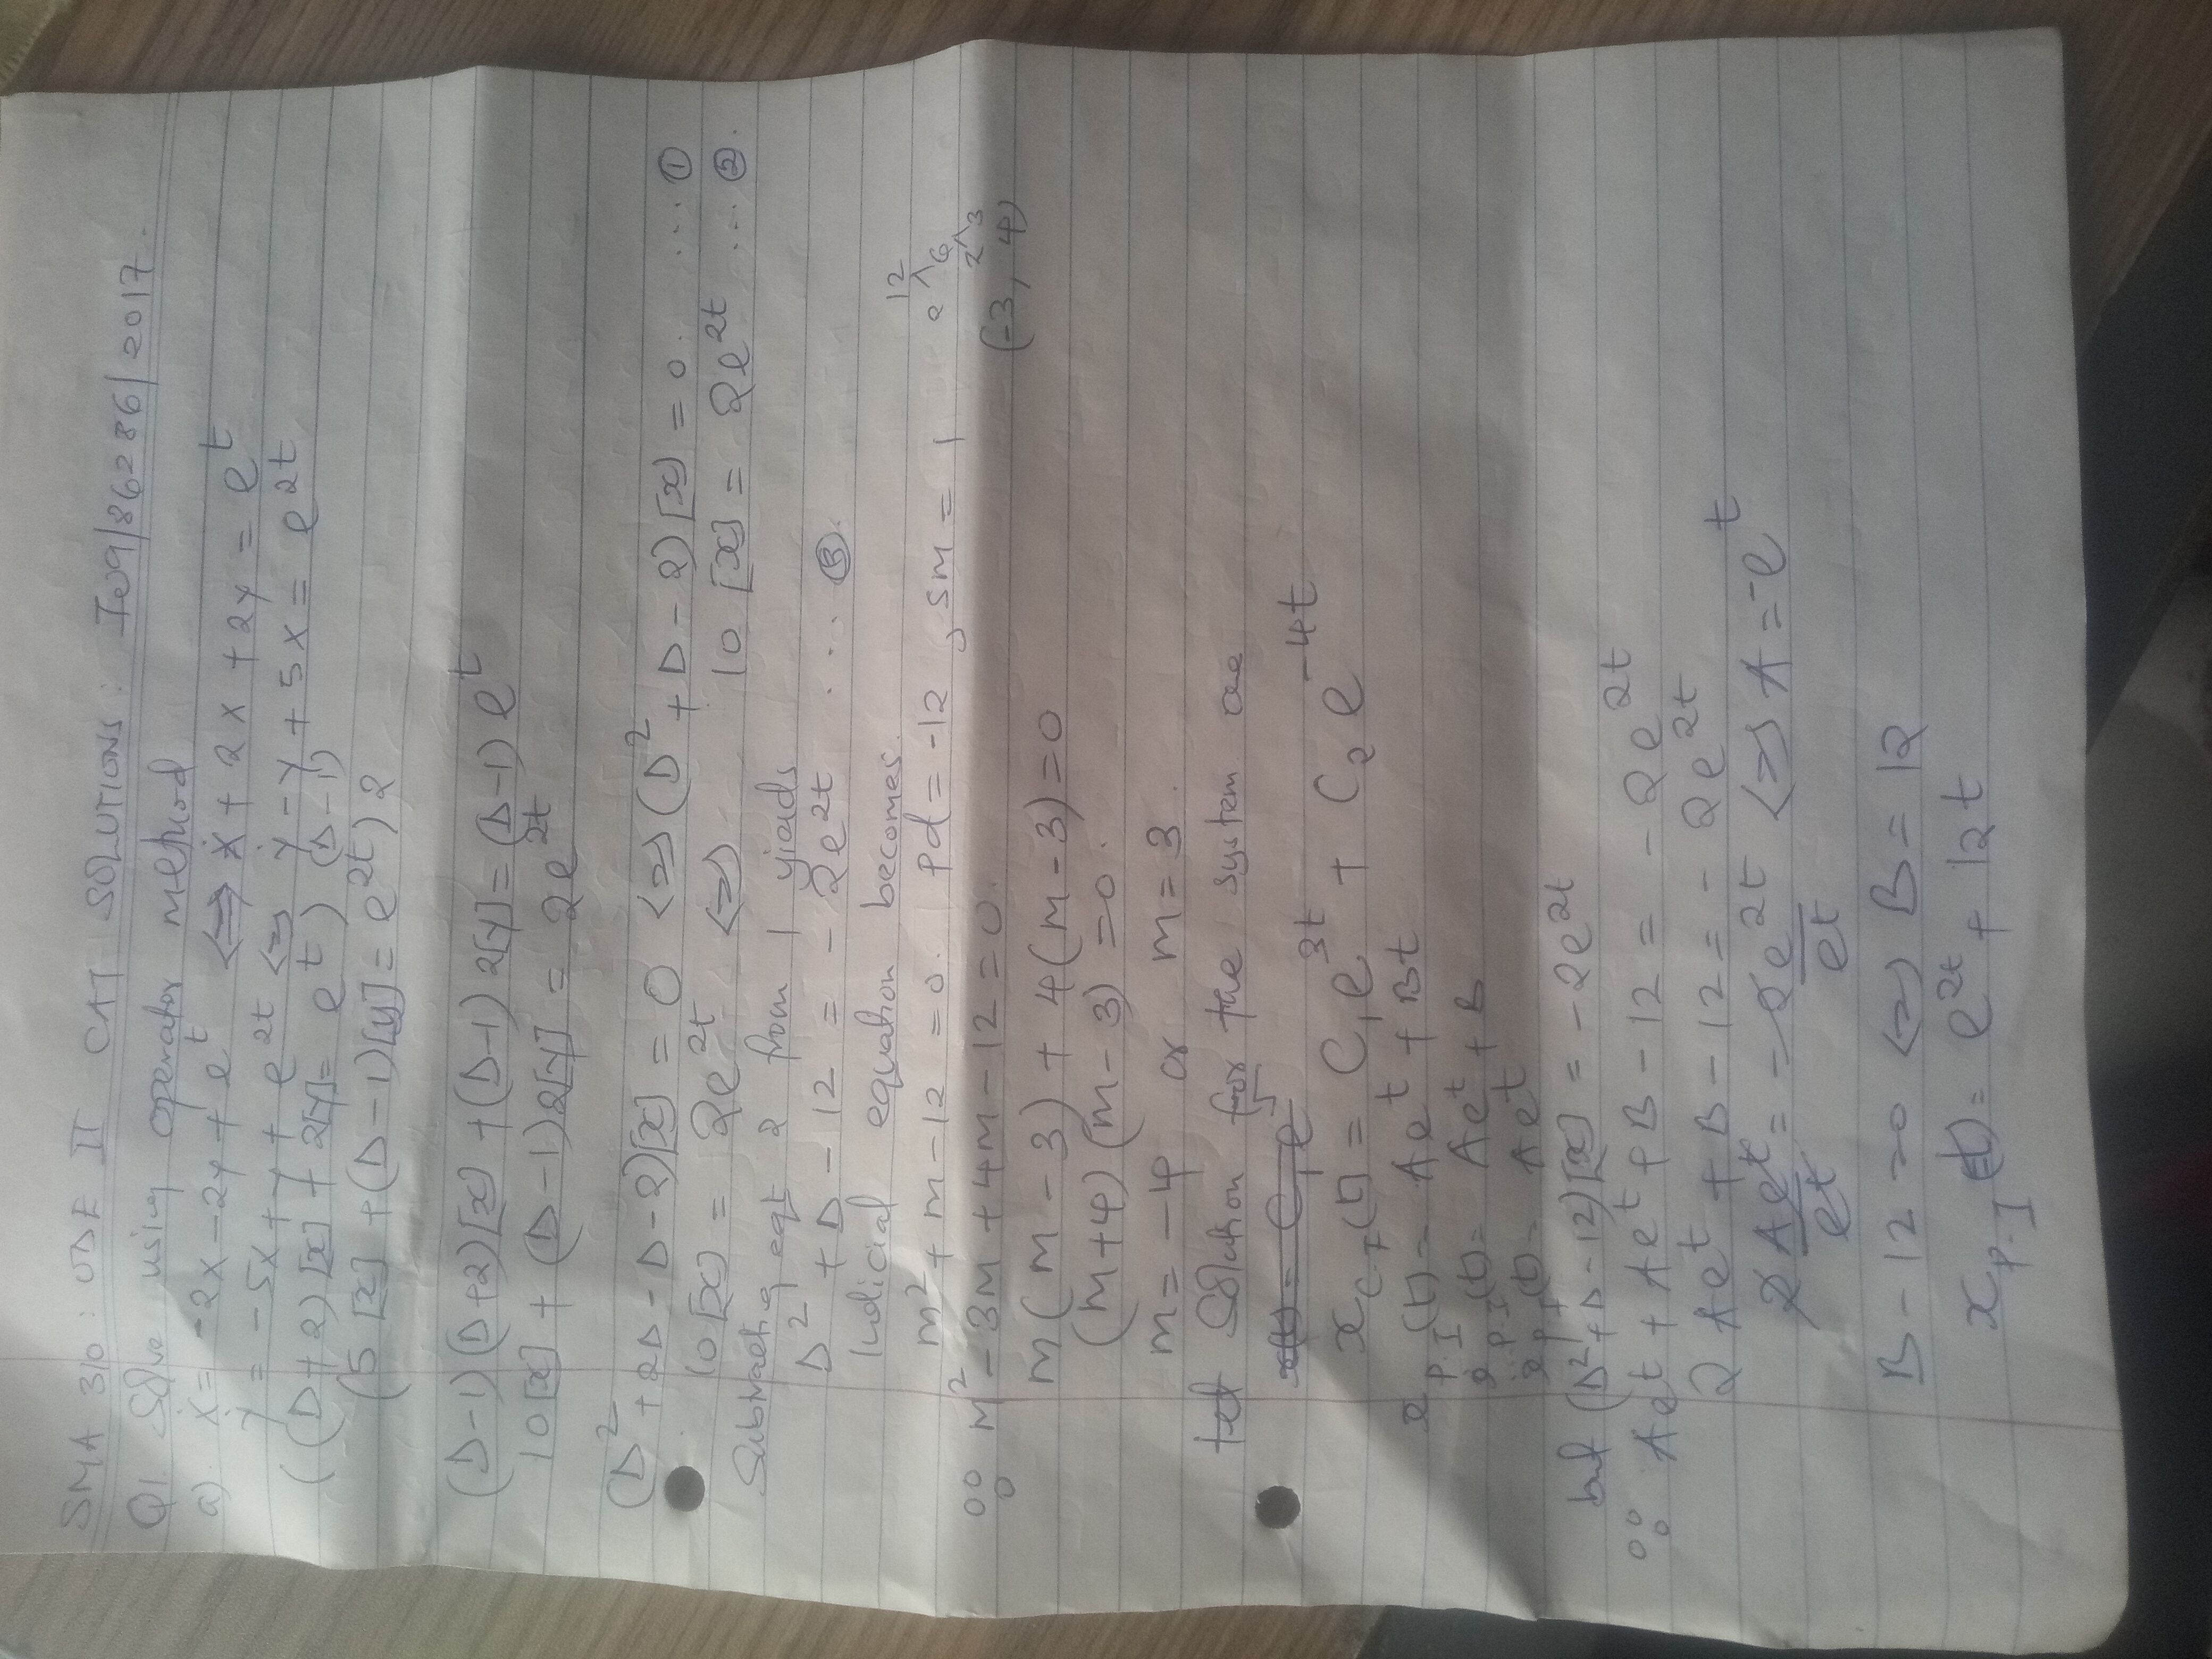 SMA 310: ODE II CAT SOLUTIONS: I09/86286/2017.
Q1. Solve using operator method
a). ẋ = -2x - 2y + e^t <=> ẋ + 2x + 2y = e^t
ẏ = -5x + y + e^2t <=> ẏ - y + 5x = e^2t
((D + 2)[x] + 2[y] = e^t) (D - 1)
(5[x] + (D - 1)[y] = e^2t) 2
(D - 1)(D + 2)[x] + (D - 1) 2[y] = (D - 1) e^t
10[x] + (D - 1) 2[y] = 2e^2t
(D^2 + 2D - D - 2)[x] = 0 <=> (D^2 + D - 2)[x] = 0. ... ①
10[x] = 2e^2t <=> 10[x] = 2e^2t ... ②.
Subtracting eqt 2 from 1 yields
D^2 + D - 12 = - 2e^2t ... ③.
Indicial equation becomes.
m^2 + m - 12 = 0. Pd = -12, sm = 1
12
2 6
2 3
(-3, 4)
∴ m^2 - 3m + 4m - 12 = 0.
m(m - 3) + 4(m - 3) = 0
(m + 4)(m - 3) = 0.
m = -4 or m = 3.
Solution for the system are
x C.F(t) = C₁e^3t + C₂e^-4t
x P.I(t) = Ae^t + Bt
x P.I(t) = Ae^t + B
x P.I(t) = Ae^t
but (D^2 + D - 12)[x] = -2e^2t
∴ Ae^t + Ae^t + B - 12 = -2e^2t
2Ae^t + B - 12 = -2e^2t
2Ae^t = -2e^2t <=> A = -e^t
e^t e^t
B - 12 = 0 <=> B = 12
x P.I(t) = e^2t + 12t